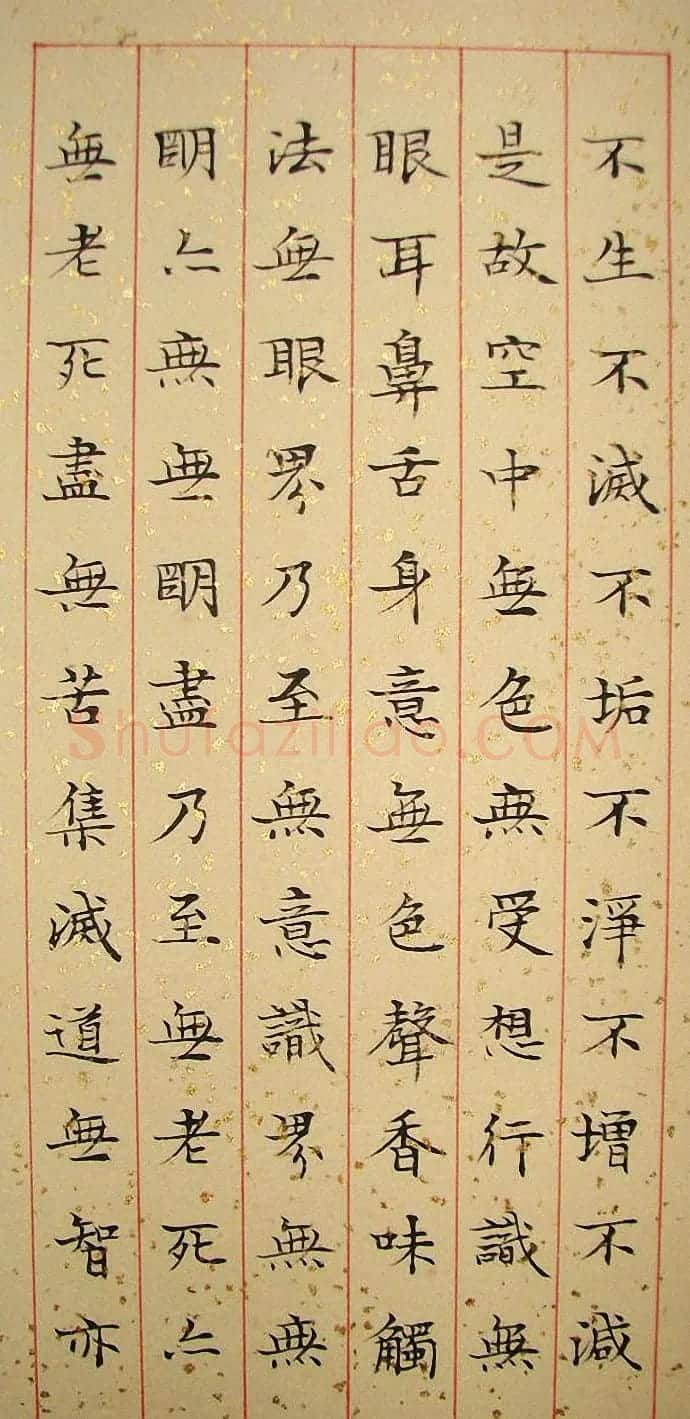 不生不滅不垢不淨不增不減
是故空中無色無受想行識無
眼耳鼻舌身意無色聲香味觸
法無眼界乃至無意識界無無
明亦無無明盡乃至無老死亦
無老死盡無苦集滅道無智亦
shufaziliao.COM